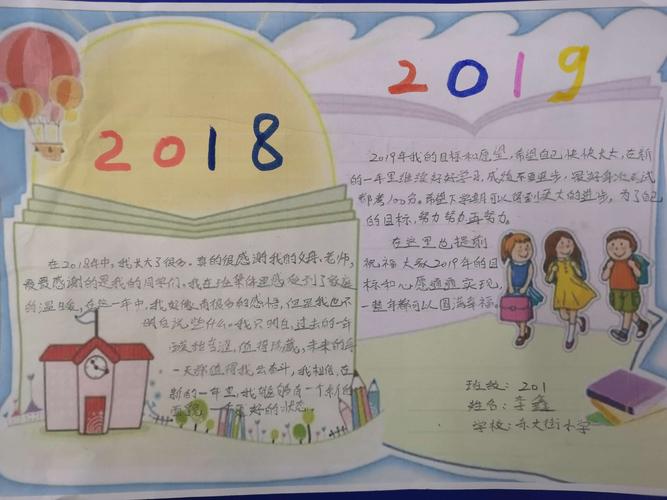 2018
在2018年中，我长大了很多。真的很感谢我的父母、老师，
最要感谢的是我的同学们。我在班集体里感受到了家庭
的温暖，在这一年中，我好像有很多的感悟，但是我也不
明白说些什么。我只明白，过去的一年
一天都值得我去奋斗，我相信，在
新的一年里，我能够有一个新的
面貌，一个更好的状态。
2019
2019年我的目标和愿望，希望自己快快长大，在新
的一年里继续好好学习，成绩不断进步，最好每次考试
都考100分。希望下学期可以得到更大的进步，为了自己
的目标，努力努力再努力。
在这里也提前
祝福大家2019年的目
标和心愿通通实现，
一整年都可以圆满幸福。
班级：201
姓名：李鑫
学校：东大街小学